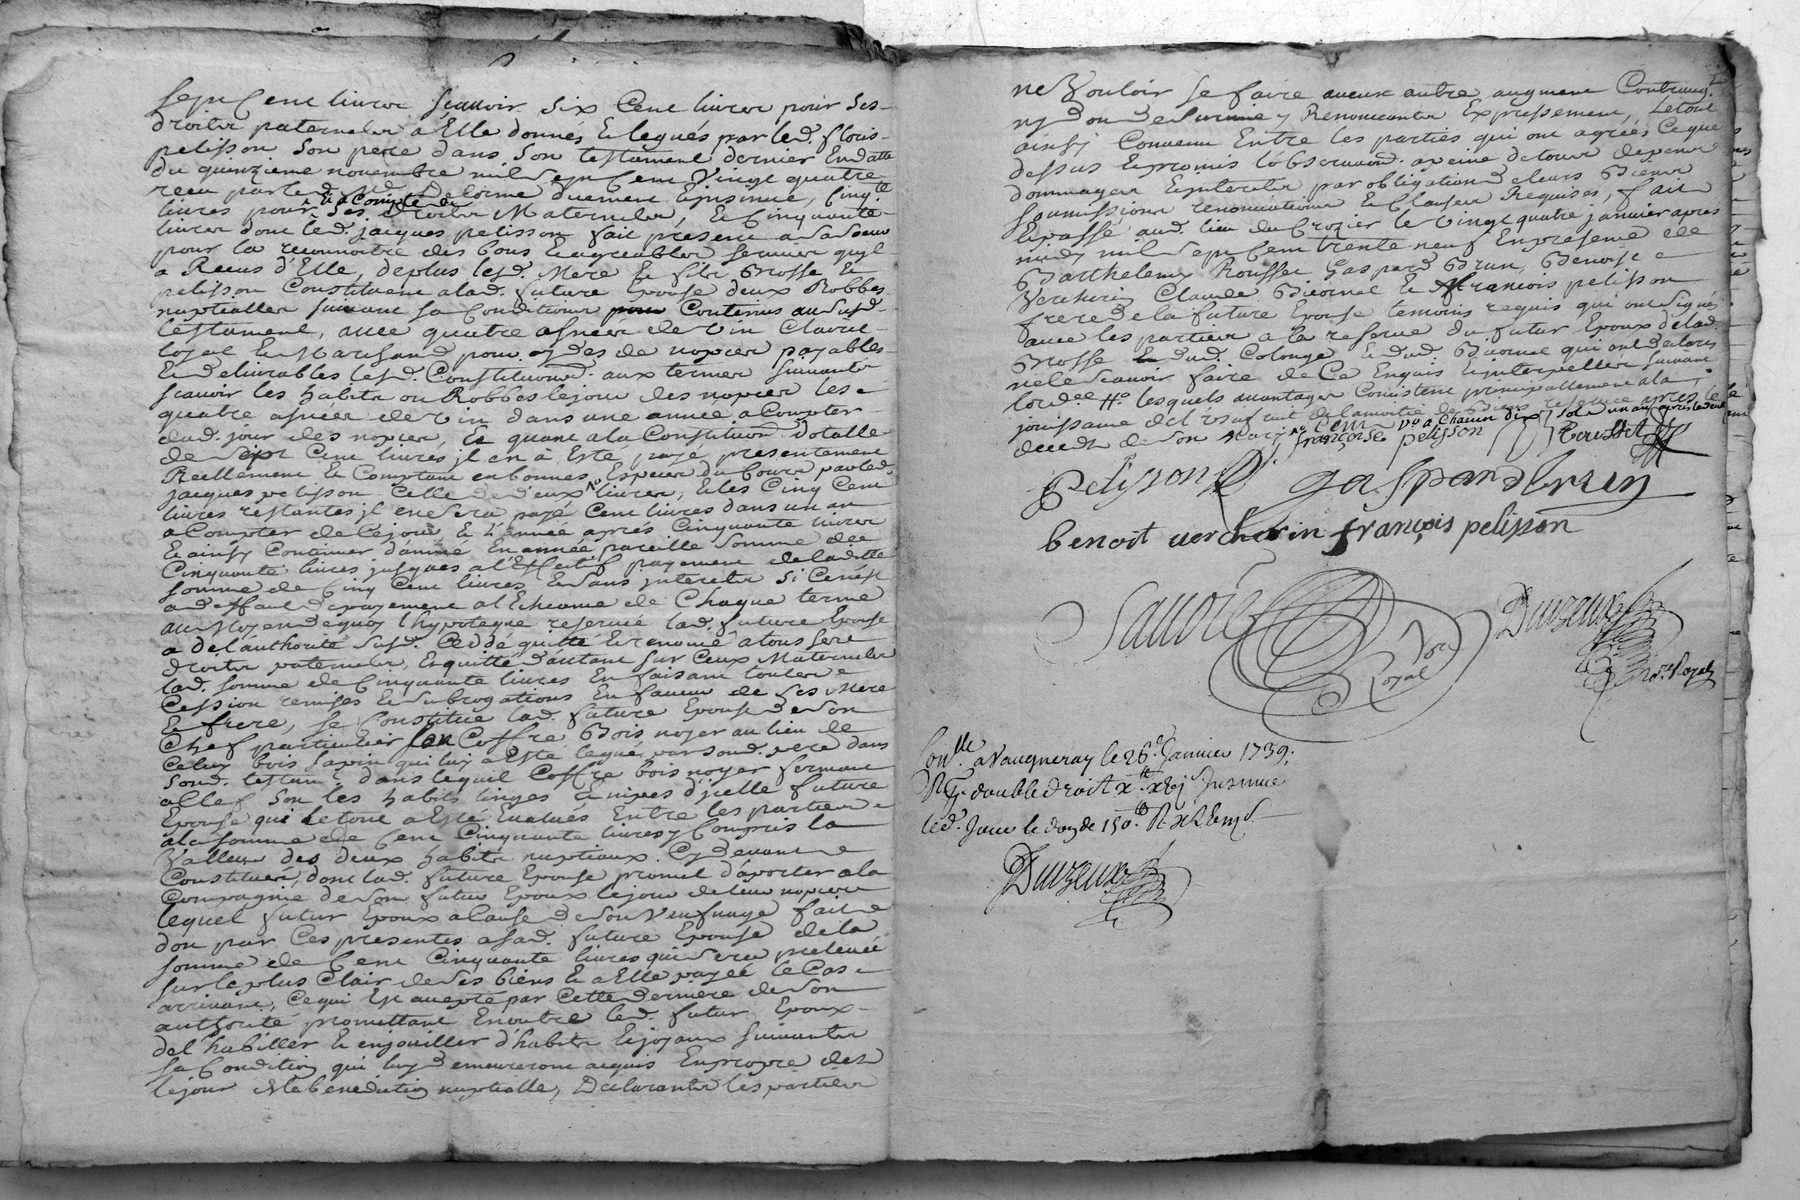 sept Cent livres scauoir six Cent livres pour ses
droits paternels a Elle donnés & legués par led. floris
pelisson son pere dans son testament dernier En datte
du quinzieme novembre mil sept Cent Vingt quatre
receu par led. Delorme duement Insinué, Cinq.te
livres pour & a Compte de ses droits Maternels, & Cinquante
livres dont led. jacques pelisson fait présent a sa soeur
pour la reconnoitre des bons & agreables services qu'il
a Receus d'Elle, de plus lesd. Mere & fils Brosse &
pelisson Constituent a lad. future Epouse deux Robbes
nuptialles suivant sa Condition Contenus aud.
testament, avec quatre asnées de vin Clairet
loyal & Marchand pour de nopces payables
& delivrables lesd. Constitutions aux termes suivants
scavoir les habits ou Robbes le jour des nopces les
quatre asnées de vin dans une année a Compter
dud. jour des nopces, & quant a la Constitution dotalle
de sept Cent livres il en a Esté payé presentement
Reellement & Comptant en bonnes Especes du Cours par led.
jacques pelisson Celle de deux Cent livres, & les Cinq Cent
livres restantes il en sera payé Cent livres dans un an
a Compter de Ce jour & l'année apres Cinquante livres
& ainsy Continuer d'année En année pareille somme de
Cinquante livres jusques a l'Effectif payement de ladite
somme de Cinq Cent livres & sans interets si Ce n'est
a deffaut de payement a l'Echeance de Chaque terme
au Moyen de quoy l'hypoteque reservé lad. future Epouse
a de l'authorité susd. Ceddé quitté & renoncé a tous ses
droits paternels, & quitté d'autant sur Ceux Maternels
lad. somme de Cinquante livres En faisant toutes
Cession remises & subrogations En faveur de ses Mere
& frere, se Constitue lad. future Epouse de son
Chef particulier son Coffre Bois noyer au lieu de
Celuy bois sapin qui luy a Esté legué par sond. pere dans
sond. testamt. dans lequel Coffre bois noyer fermant
a clef son les habits linges & nipes d'icelle future
Epouse qui le tout a Esté Evalués Entre les parties
a la somme de Cent Cinquante livres y Compris la
Valleur des deux habits nuptiaux Cy devant
Constitués, dont lad. future Epouse promet d'aporter a la
Compagnie de son futur Epoux le jour de leur nopces
lequel futur Epoux a Cause de son Veufvage fait
don par Ces presentes a sad. future Epouse de la
somme de Cent Cinquante livres qui sera prelevée
sur le plus Clair de ses biens & a Elle payée le Cas
arrivant, Ce qui Est accepté par Cette derniere de son
authorité promettant En outre led. futur Epoux
de l'habiller & enjoailler d'habits & joyaux suivants
sa Condition qui luy demeureront acquis En propre dez
le jour de la benediction nuptialle, Declarants les parties
ne Vouloir se faire aucun autre augment Contraug.
ny don de survie y Renonceants Expressement, Le tout
ainsy Convenu Entre les parties qui ont agréés Ce que
dessus & promis l'observation a peine de tous depens
dommages & interets par obligation de leurs Biens
soumissions renonciations & Clauses Requises, fait
& passé aud. lieu du Crozier le vingt quatre janvier apres
midy mil sept Cent trente neuf En presence de
Barthelemy Rousset Gaspard Brun, Benoist
Vercherin Claude Biornet & françois pelisson
frere de la future Epouse temoins requis qui ont signés
avec les parties a la reserve du futur Epoux de lad.
Brosse dud. Colonge & dud. Biornet qui ont declarés
ne le scavoir faire de Ce Enquis & interpellés suivant
lord.ce lesquels avantages Consistent principallement a la
jouissance de l'usufruit de la moitié de biens reservée apres le
deceds de son Mary
françoise pelisson Rousset
Pelisson gaspard brun
benoit vercherin françois pelisson
Sauvire Nore Royal
Duvzeux Nore. Royal
Conlle. a Vaugneray le 26.e Janvier 1739;
double droit Insinué
led. Jour le don de 150.lt
Duvzeux